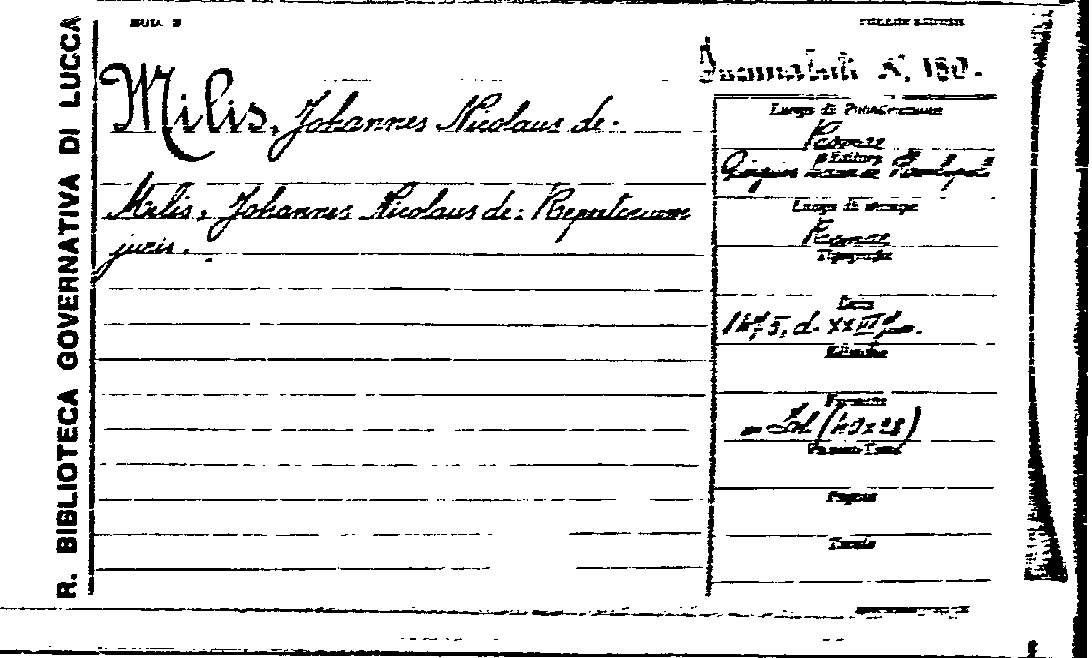 R. BIBLIOTECA GOVERNATIVA DI LUCCA
MOD. B
Incunabuli N. 180.
Milis, Johannes Nicolaus de.
Milis, Johannes Nicolaus de: Repertorium
juris.
Luogo di Pubblicazione
Romae
Editore
Luogo di stampa
Romae
Tipografia
Data
1475, d. XXIII
Edizione
Formato
Fol (40x28)
Pagine
Tavole